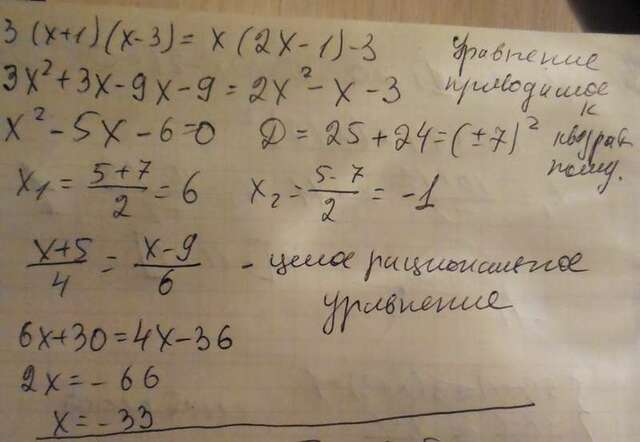 3 (x+1) (x-3) = x (2x-1) -3
Уравнение
приводимое
к
квадрат
ному.
3x² + 3x - 9x - 9 = 2x² - x - 3
x² - 5x - 6 = 0   Д = 25 + 24 = (±7)²
x₁ = (5+7)/2 = 6   x₂ = (5-7)/2 = -1
(x+5)/4 = (x-9)/6 - целое рациональное
уравнение
6x+30=4x-36
2x = - 66
x = - 33